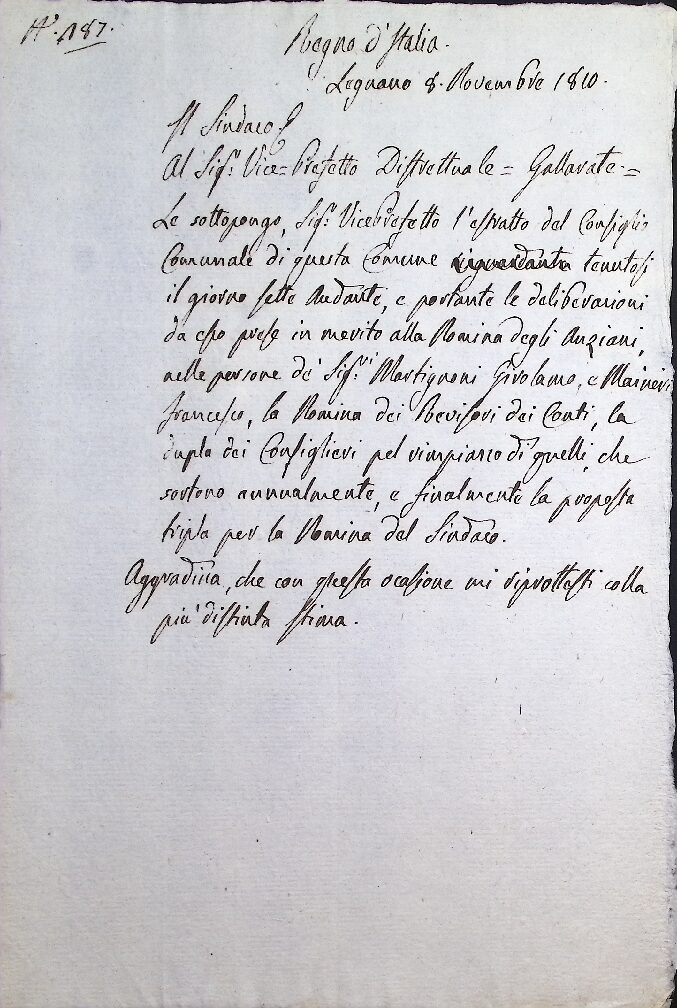 N°. 187.
Regno d'Italia.
Legnano 8. Novembre 1810.
Il Sindaco
Al Sigr. Vice=Prefetto Distrettuale = Gallarate.=
Le sottopongo, Sigr. VicePrefetto l'estratto del Consiglio
Comunale di questa Comune riguardante tenutosi
il giorno sette Andante, e portante le deliberazioni
da esso prese in merito alla Nomina degli Anziani,
nelle persone de' Sigri. Martignoni Girolamo, e Maineri
francesco, la Nomina dei Revisori dei Conti, la
dupla dei Consiglieri pel rimpiazzo di quelli, che
sortono annualmente, e finalmente la proposta
tripla per la Nomina del Sindaco.
Aggradisca, che con questa ocasione mi riprottesti colla
più distinta stima.